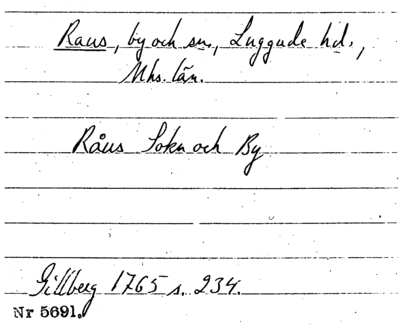 Raus, by och sn., Luggude hd.,
Mhs. län.
Råus Sokn och By
Gillberg 1765 s. 234.
Nr 5691.